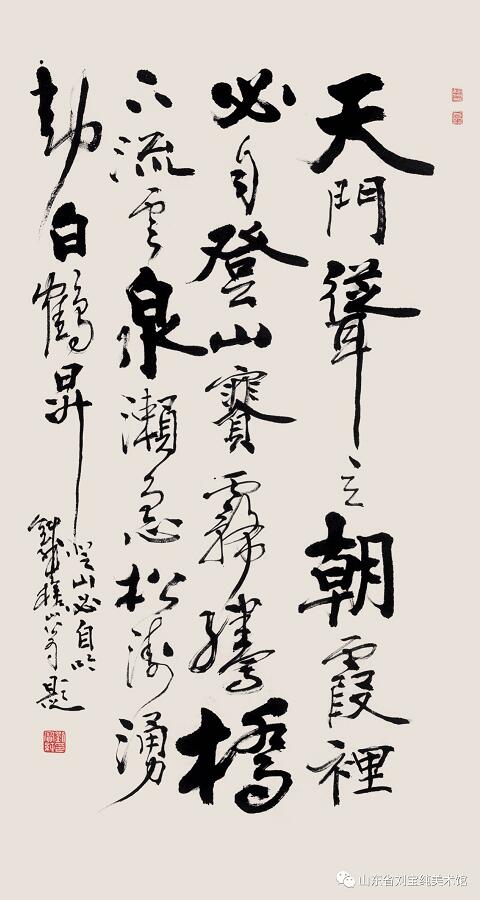 天門聳立朝霞裡
必自登山賽霧騰橋
下流雲泉瀨急松濤湧
動白鶴昇
登山必自吟
山翁題
山东省刘宝纯美术馆